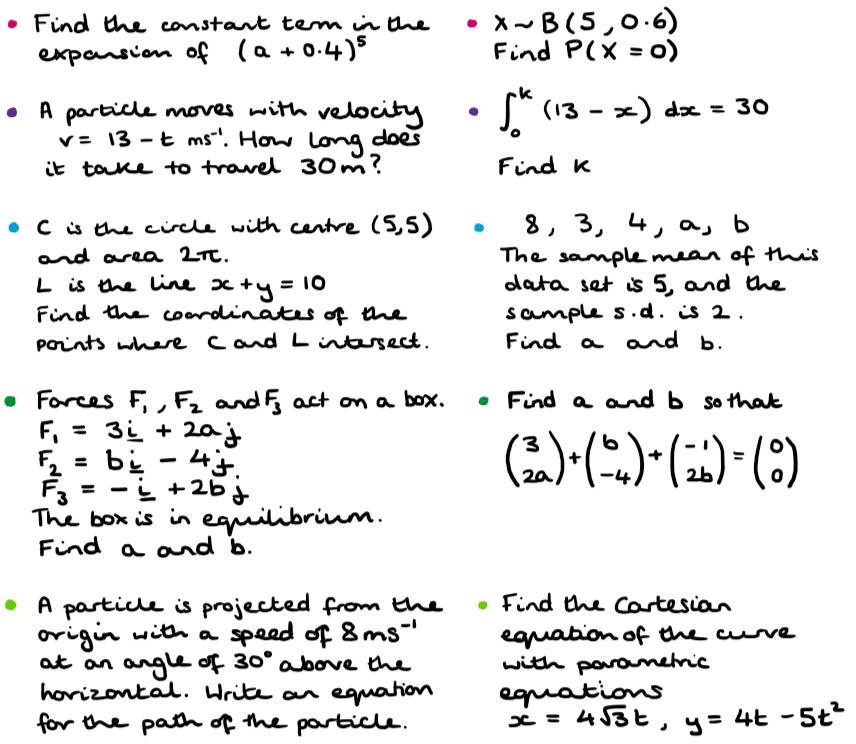 • Find the constant term in the
expansion of (a + 0.4)⁵
• X ~ B(5, 0.6)
Find P(X = 0)
• A particle moves with velocity
v = 13 - t ms⁻¹. How long does
it take to travel 30m?
• ∫₀ᵏ (13 - x) dx = 30
Find k
• C is the circle with centre (5,5)
and area 2π.
L is the line x + y = 10
Find the coordinates of the
points where C and L intersect.
• 8, 3, 4, a, b
The sample mean of this
data set is 5, and the
sample s.d. is 2.
Find a and b.
• Forces F₁, F₂ and F₃ act on a box.
F₁ = 3i + 2aj
F₂ = bi - 4j
F₃ = -i + 2bj
The box is in equilibrium.
Find a and b.
• Find a and b so that
(3 2a) + (b -4) + (-1 2b) = (0 0)
• A particle is projected from the
origin with a speed of 8ms⁻¹
at an angle of 30° above the
horizontal. Write an equation
for the path of the particle.
• Find the Cartesian
equation of the curve
with parametric
equations
x = 4√3t, y = 4t - 5t²